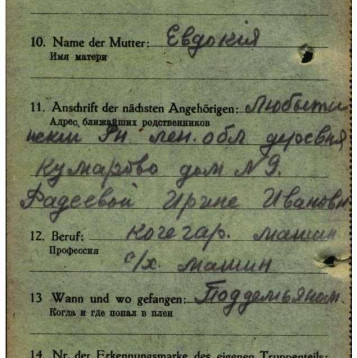 10. Name der Mutter: Евдокия
Имя матери
11. Anschrift der nächsten Angehörigen: Любыти
Адрес ближайших родственников
нский Рн лен. обл деревня
Кумарово дом № 9.
Фадеевой Ирине Ивановн
12. Beruf: кочегар. машин
Профессия
с/х. машин
13 Wann und wo gefangen: Поддемьяном.
Когда и где попал в плен
14. Nr. der Erkennungsmarke des eigenen Truppenteils: